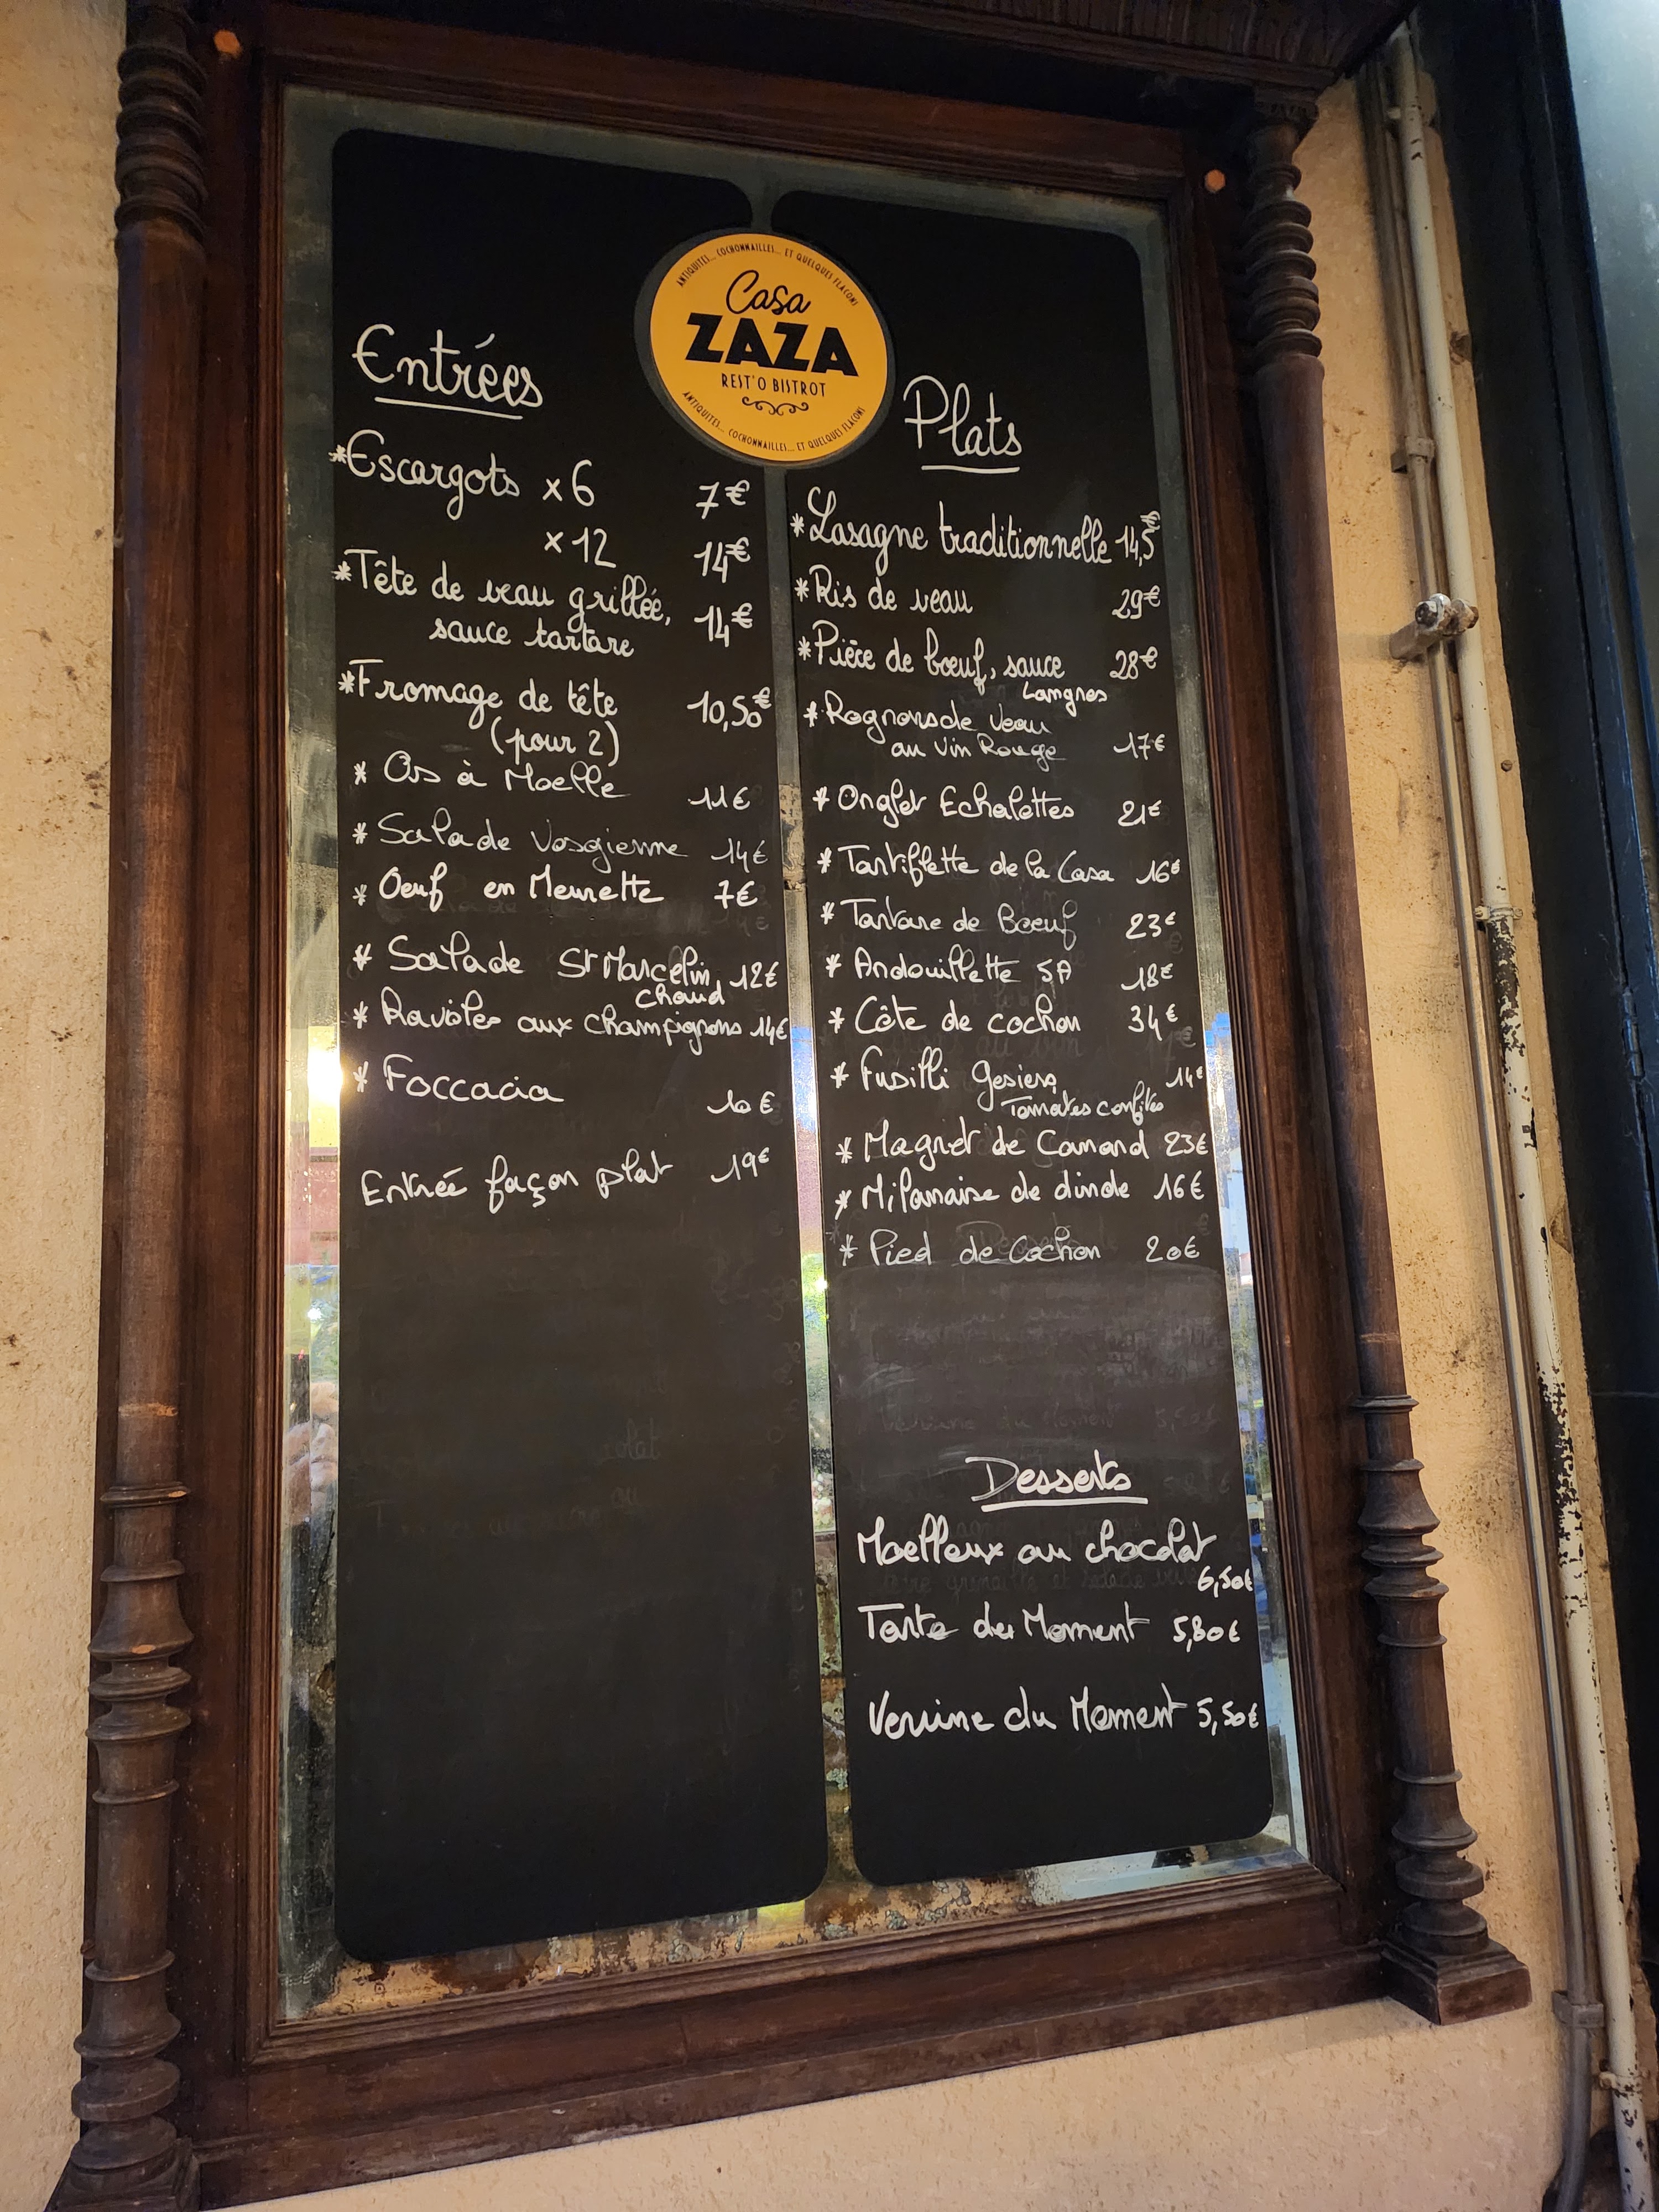 ANTIQUITES... COCHONNAILLES... ET QUELQUES FLACONS
Casa
ZAZA
REST'O BISTROT
ANTIQUITES... COCHONNAILLES... ET QUELQUES FLACONS
Entrées
*Escargots x6 7€
x12 14€
*Tête de veau grillée,
sauce tartare 14€
*Fromage de tête 10,50€
(pour 2)
* Os à Moelle 11€
* Salade Vosgienne 14€
* Oeuf en Meurette 7€
* Salade St Marcelin 12€
chaud
* Ravioles aux champignons 14€
* Foccacia 10€
Entrée façon plat 19€
Plats
*Lasagne traditionnelle 14,5€
*Ris de veau 29€
*Pièce de bœuf, sauce 28€
Langres
*Rognons de Veau
au Vin Rouge 17€
* Onglet Echalottes 21€
* Tartiflette de la Casa 16€
* Tartare de Boeuf 23€
* Andouillette 5A 18€
* Côte de cochon 34€
* Fusilli Gesiers 14€
Tomates confites
* Magret de Canard 23€
* Milanaise de dinde 16€
* Pied de Cochon 20€
Desserts
Moelleux au chocolat
6,50€
Tarte du Moment 5,80€
Verrine du Moment 5,50€